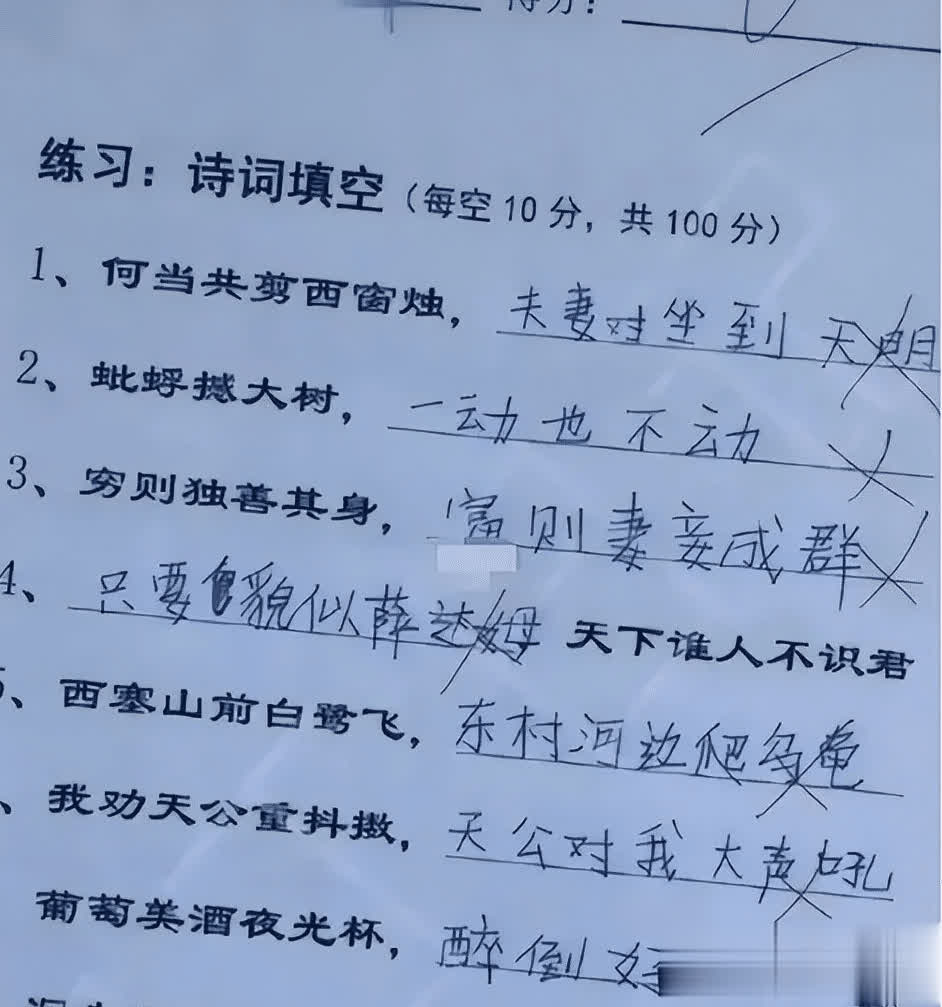 得分：
练习：诗词填空（每空10分，共100分）
1、何当共剪西窗烛，夫妻对坐到天明
2、蚍蜉撼大树，一动也不动
3、穷则独善其身，富则妻妾成群
4、只要貌似萨达姆 天下谁人不识君
、西塞山前白鹭飞，东村河边爬乌龟
、我劝天公重抖擞，天公对我大声吼
葡萄美酒夜光杯，醉倒